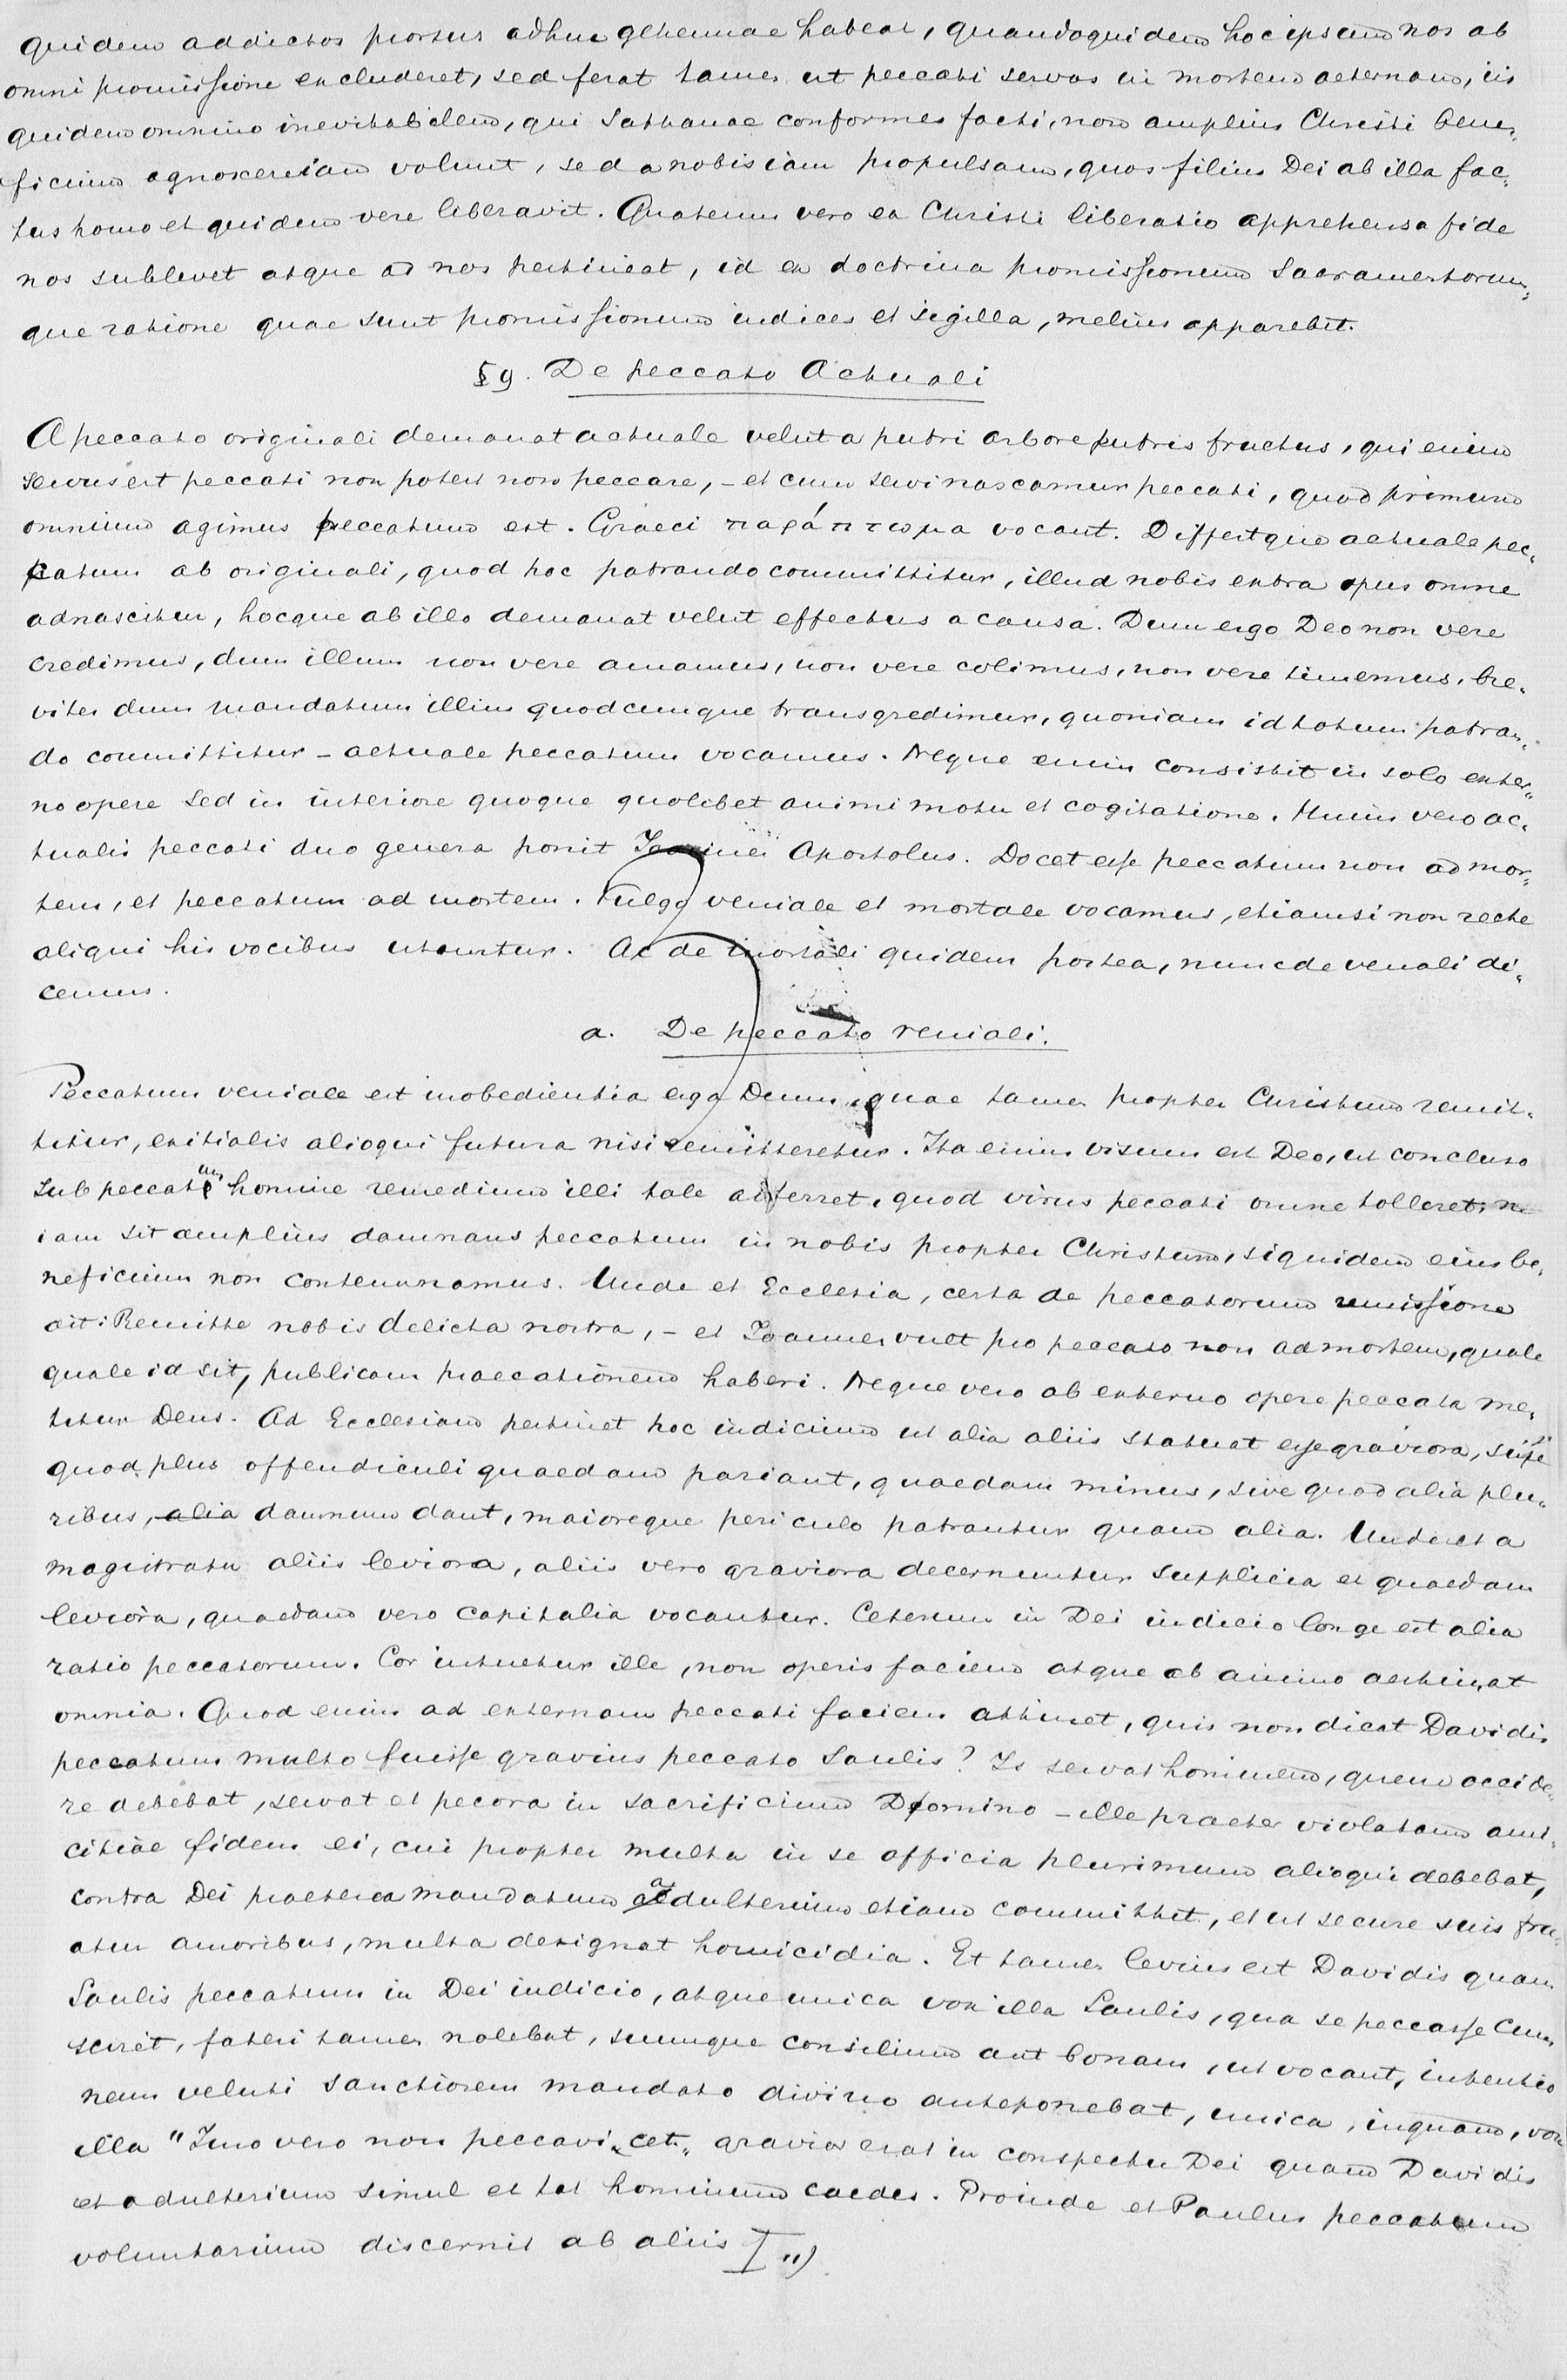 quidem addictos prorsus adhuc gehennae habeat, quandoquidem hoc ipsum nos ab
omni promissione excluderet, sed ferat tamen ut peccati servos in mortem aeternam, iis
quidem omnino inevitabilem, qui Sathanae conformes facti, non amplius Christi bene-
ficium agnoscere iam volunt, sed a nobis iam propulsam, quos filius Dei ab illa fac-
tus homo et quidem vere liberavit. Quatenus vero ea Christi liberatio apprehensa fide
nos sublevet atque ad nos pertineat, id ex doctrina promissionum Sacramentorum-
que ratione quae sunt promissionum indices et sigilla, melius apparebit.
§ 9. De peccato Actuali
A peccato originali demanat actuale velut a putri arbore putris fructus, qui enim
servus est peccati non potest non peccare, - et cum servi nascamur peccati, quod primum
omnium agimus peccatum est. Graeci παράπτωμα vocant. Differtque actuale pec-
catum ab originali, quod hoc patrando committitur, illud nobis extra opus omne
adnascitur, hocque ab illo demanat velut effectus a causa. Dum ergo Deo non vere
credimus, dum illum non vere amamus, non vere colimus, non vere timemus, bre-
viter dum mandatum illius quodcumque transgredimur, quoniam id totum patran-
do committitur - actuale peccatum vocamus. Neque enim consistit in solo exter-
no opere sed in interiore quoque quolibet animi motu et cogitatione. Huius vero ac-
tualis peccati duo genera ponit Ioannes Apostolus. Docet esse peccatum non ad mor-
tem, et peccatum ad mortem. Vulgo veniale et mortale vocamus, etiamsi non recte
aliqui his vocibus utuntur. Ac de mortali quidem postea, nunc de venali di-
cemus.
a. De peccato veniali.
Peccatum veniale est inobedientia erga Deum, quae tamen propter Christum remit-
titur, exitialis alioqui futura nisi remitteretur. Ita enim visum est Deo, ut concluso
sub peccatum homine remedium illi tale afferret, quod virus peccati omne tolleret, ne
iam sit amplius damnans peccatum in nobis propter Christum, siquidem eius be-
neficium non contemnamus. Unde et Ecclesia, certa de peccatorum remissione
ait: Remitte nobis delicta nostra, - et Ioannes vult pro peccato non ad mortem, quale
quale id sit, publicam praecationem haberi. Neque vero ab externo opere peccata me-
titur Deus. Ad Ecclesiam pertinet hoc iudicium ut alia aliis statuat esse graviora, sive
quod plus offendiculi quaedam pariant, quaedam minus, sive quod alia plu-
ribus, alia damnum dant, maioreque periculo patrantur quam alia. Unde et a
magistratu aliis leviora, aliis vero graviora decernuntur supplicia et quaedam
leviora, quaedam vero capitalia vocantur. Ceterum in Dei iudicio longe est alia
ratio peccatorum. Cor intuetur ille, non operis faciem atque ab animo aestimat
omnia. Quod enim ad externam peccati faciem attinet, quis non dicat Davidis
peccatum multo fuisse gravius peccato Saulis? Is servat hominem, quem occide-
re debebat, servat et pecora in sacrificium Domino - ille praeter violatam ami-
citiae fidem ei, cui propter multa in se officia plurimum alioqui debebat,
contra Dei praeterea mandatum adulterium etiam committit, et ut secure suis fru-
atur amoribus, multa designat homicidia. Et tamen levius est Davidis quam
Saulis peccatum in Dei iudicio, atque unica vox illa Saulis, qua se peccasse cum
sciret, fateri tamen nolebat, suumque consilium aut bonam, ut vocant, intentio
nem veluti sanctiorem mandato divino anteponebat, unica, inquam, vox
illa "Imo vero non peccavi" cet. gravior erat in conspectu Dei quam Davidis
et adulterium simul et tot hominum caedes. Proinde et Paulus peccatum
voluntarium discernit ab aliis I ")